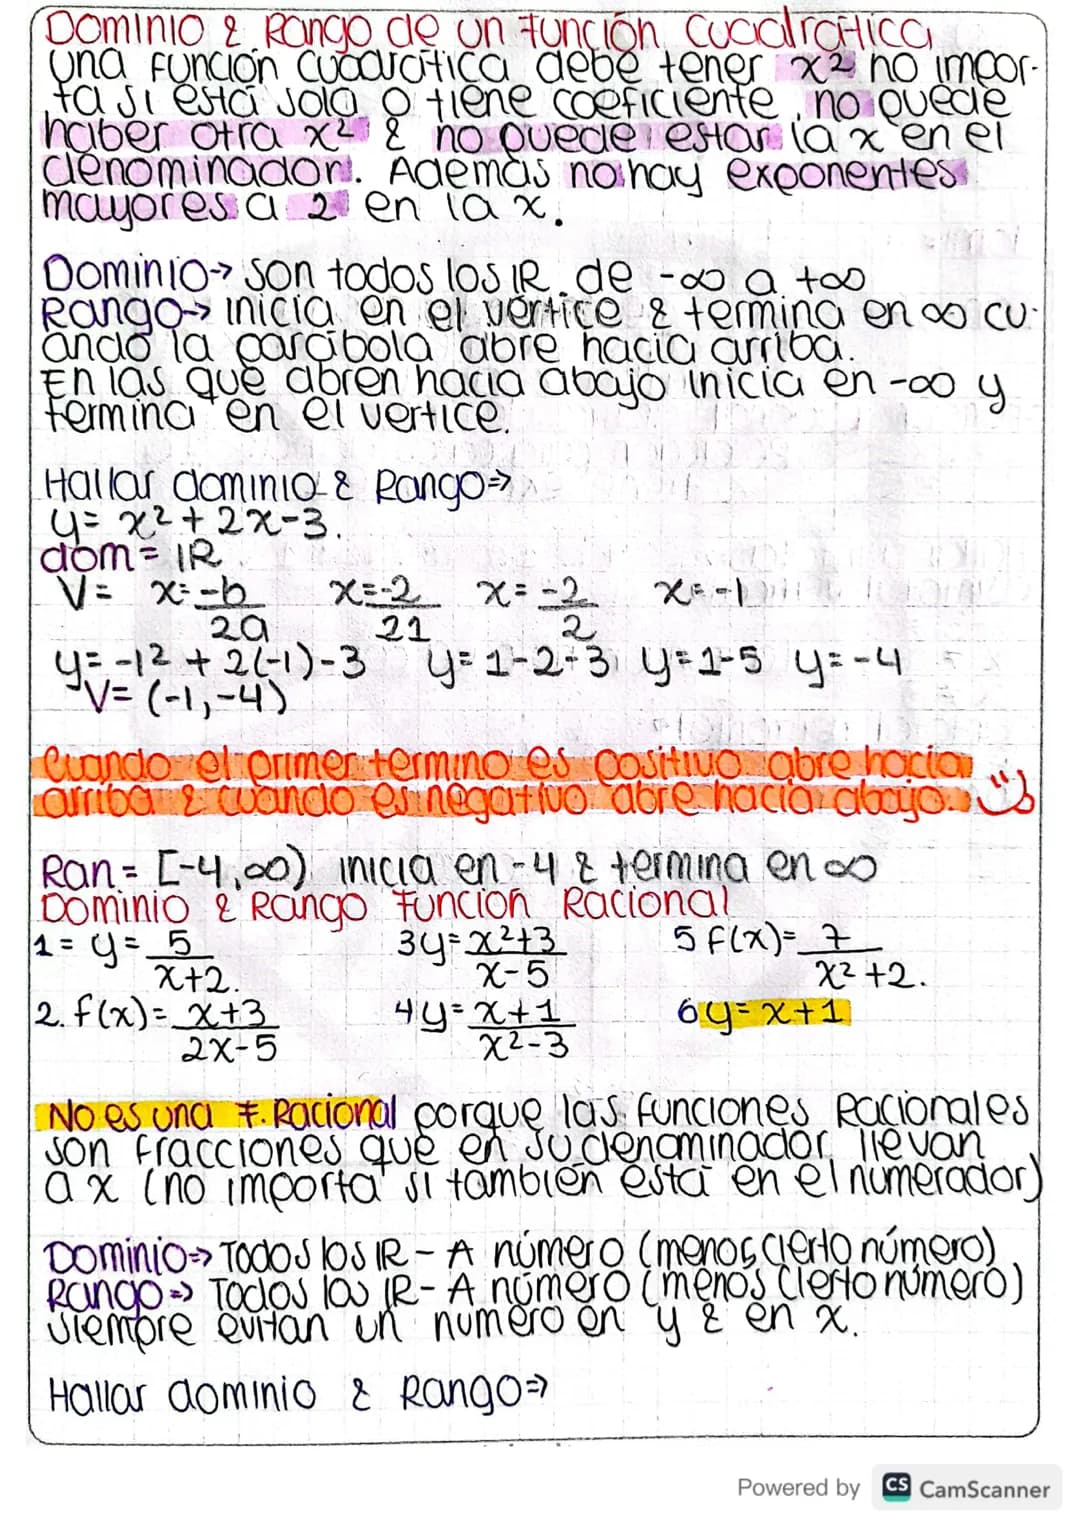 Dominio & Rango de un función cuadrática
una función cuadrática debe tener x² no impor-
ta si está sola o tiene coeficiente, no puede
haber otra x² & no puede estar la x en el
denominador. Además no hay exponentes
mayores a 2 en la x.
Dominio→ son todos los IR. de -∞ a +∞
Rango→ inicia en el vértice & termina en ∞ cu-
ando la parábola abre hacia arriba.
En las que abren hacia abajo inicia en -∞ y
termina en el vertice.
Hallar dominio & Rango⇒
y= x²+2x-3.
dom= IR
V= x=-b/2a x=-2/21 x=-2/2 x=-1
y=-1²+2(-1)-3 y=1-2-3 y=1-5 y=-4
V=(-1,-4)
Cuando el primer termino es positivo abre hacia
arriba & cuando es negativo abre hacia abajo.
Ran= [-4,∞) inicia en -4 & termina en ∞
Dominio & Rango Función Racional
1= y= 5/x+2. 3y= x²+3/x-5 5 f(x)= 7/x²+2.
2. f(x)= x+3/2x-5 4y= x+1/x²-3 6y= x+1
No es una F. Racional porque las funciones Racionales
son fracciones que en su denominador llevan
a x (no importa si también está en el numerador)
Dominio⇒ Todos los IR - A número (menos cierto número)
Rango⇒ Todos los IR - A número (menos cierto número)
siempre evitan un numero en y & en x.
Hallar dominio & Rango⇒
Powered by CS CamScanner